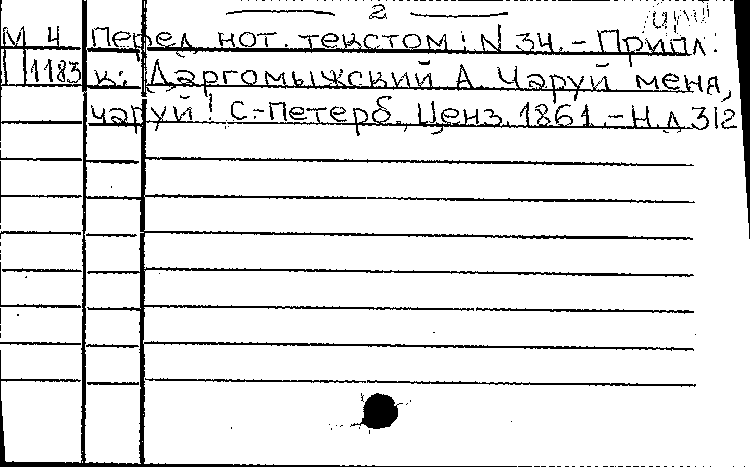 2
М 4 Перед нот. текстом: N 34. – Припл.
П 1183 к: Даргомыжский А. Чаруй меня,
чаруй! С.-Петерб., Ценз. 1861. – Н.д. 312